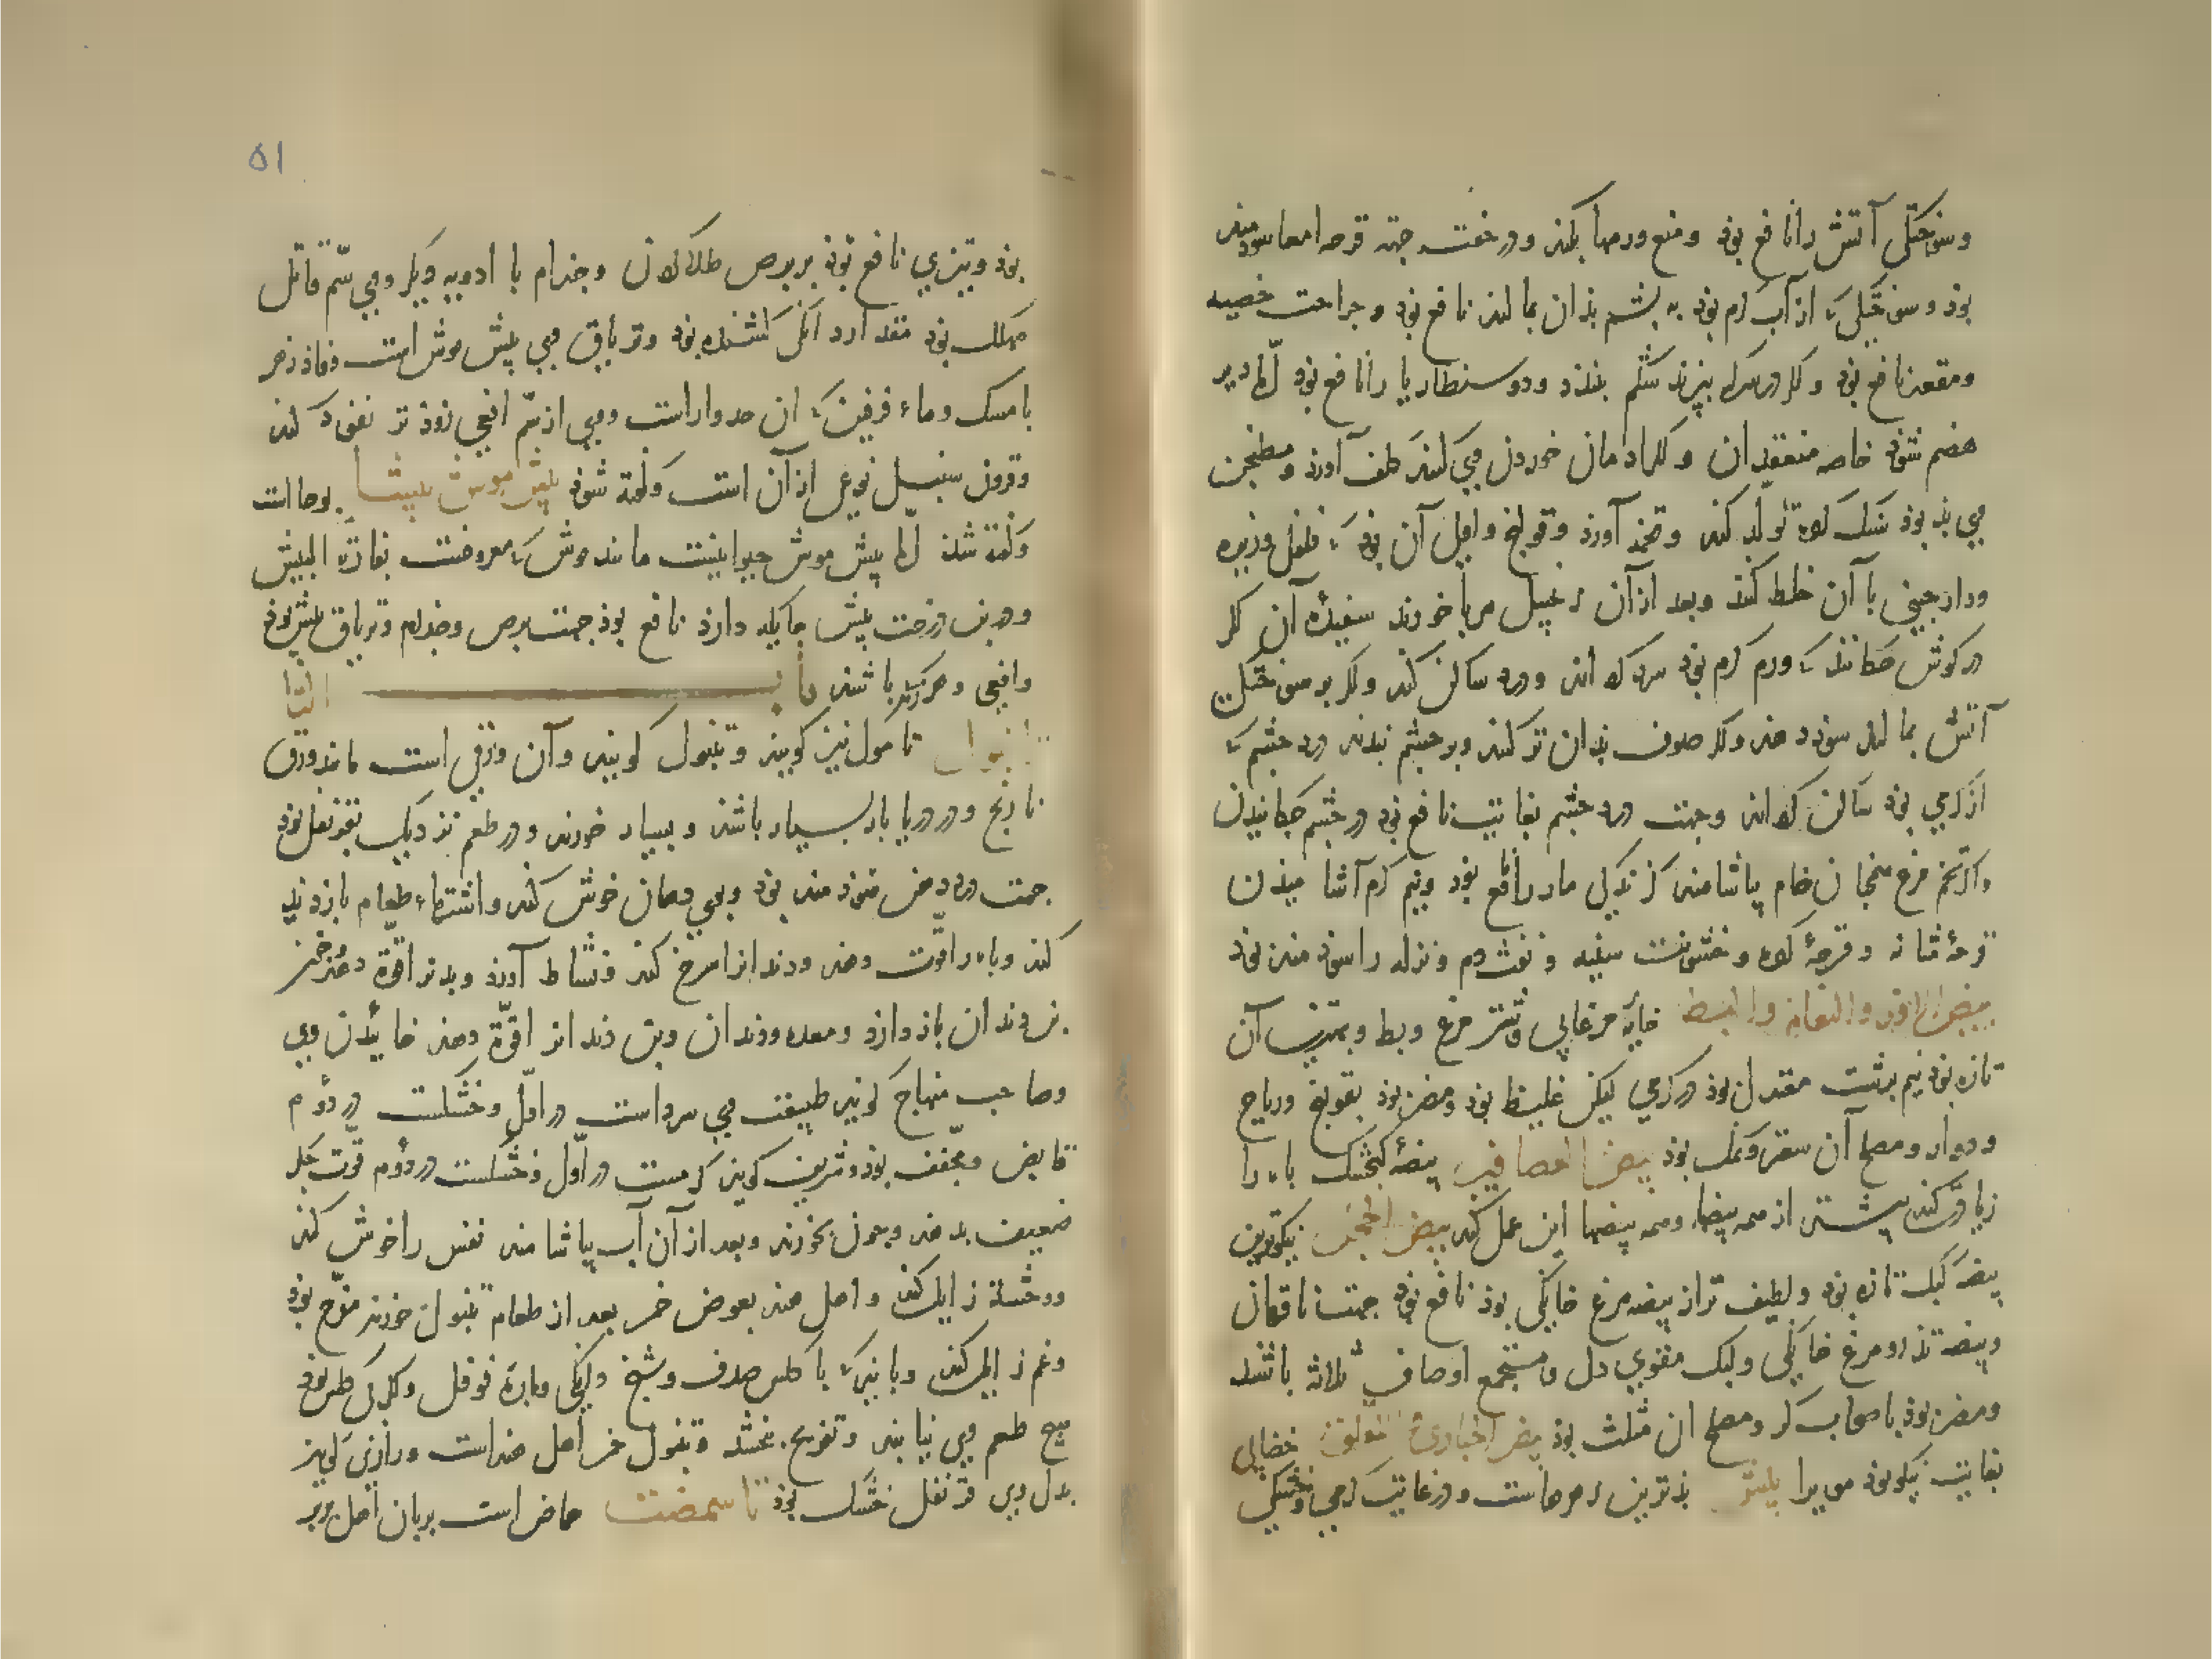 وسوختگی آتش را نافع بوذ ومنع ورمها بکند ودرحقنه جهة قرحه امعا سودمند
بوذ وسوختگی کی از آب گرم بوذ به پشم بذان بمالند نافع بوذ وجراحت خصیه
ومقعد نافع بوذ واگر در سرکه بپزند شکم ببندد ودوسنطاریا را نافع بوذ اما دیر
هضم شوذ خاصه منعقد آن واگر ادمان خوردن وی کنند کلف آورد ومطجن
وی بد بوذ سنگ گرده تولد کند وتخمه آورد وقولنج واولی آن بوذ کی فلفل وزیره
ودارچینی با آن خلط کنند وبعد از آن زنجبیل مربا خورند سفیده آن اگر
در گوش چکانند کی ورم گرم بوذ سرد گرداند ودرد ساکن کند واگر بر سوختگی
آتش بمالند سود دهد واگر صوف بذان تر کنند وبر چشم نهند درد چشم کی
از گرمی بوذ ساکن گرداند وجهت درد چشم بغایت نافع بوذ در چشم چکانیدن
واگر تخم مرغ همچنان خام بیاشامند گزندگی مار را نافع بود ونیم گرم آشامیدن
قرحه مثانه وقرحهٔ گرده وخشونت سینه ونفث دم ونزله را سود مند بوذ
بیض الاوز والنعام والبط خایهٔ مرغابی وشتر مرغ وبط وبهترین آن
تازه بوذ نیم برشت معتدل بوذ در گرمی لیکن غلیظ بوذ ومضر بوذ بقولنج وریاح
ودوار ومصلح آن سعتر ونمک بوذ بیض العصافیر بیضهٔ گنجشک باه را
زیادت کند بیشتر از همه بیضها وهمه بیضها این عمل کند بیض الحجل نیکوترین
بیضه کبک تازه بوذ ولطیف تر از بیضه مرغ خانگی بوذ نافع بوذ جهت ناقهان
وبیضه تذرو ومرغ خانگی وکبک مقوی دل ومستجمع اوصاف ثلاثه باشد
ومضر بوذ باصحاب کد ومصلح آن مثلث بوذ بیض الحباری خضابی
بغایت نیکو بوذ موی را بیش بذترین زهرهاست ودر غایت گرمی وخشکی
بوذ وتیزی نافع بوذ بر برص طلا کردن وجذام با ادویه دیگر ووی سم قاتل
مهلک بوذ مقدار دانگی کشنده بوذ وتریاق وی بیش موش است وفاذزهر
با مسک وماء فرفین کی آن جدوار است ووی از سم افعی زوذ تر نفوذ کند
وقرون سنبل نوعی از آن است وگفته شوذ بیش موش بیشا بوحا است
وگفته شذ اما بیش موش حیوانیست مانند موش کی معروفست بفارة البیش
ودر بن درخت بیش جایگه دارد نافع بوذ جهت برص وجذام وتریاق بیش بوذ
وافعی وهر زهر باشد باب التا
تانبول تامول نیز گویند وتنبول گویند وآن ورقی است مانند ورق
نارنج ودر دریابار بسیار باشد وبسیار خورند ودر طعم نزدیک بقرنفل بوذ
جهت درد دهن سوذمند بوذ وبوی دهان خوش کند واشتهاء طعام بازدید
کند وباه را قوت دهد ودندانها سرخ کند ونشاط آورد وبدن را قوة دهد
بن دندان باز دارد ومعده ودندان وبن دندانرا قوة دهد خائیدن وی
وصاحب منهاج گوید طبیعت وی سرد است در اول وخشکست در دوم
قابض ومجفف بوذ وشریف گوید گرمست در اول وخشکست در دوم قوت جگر
ضعیف بدهد وچون بخورند وبعد از آن آب بیاشامند نفس را خوش کند
ووحشة زایل کند واهل هند بعوض خمر بعد از طعام تنبول خورند مفرح بوذ
وغم زایل کند وباید کی با کلس صدف وشیخ دانگی وپارهٔ فوفل واگر بی کلس بوذ
هیچ طعم وی نیابند وتفریح نبخشد وتنبول خمر اهل هند است ورازی گوید
بدل وی قرنفل خشک بوذ تاسمضت حماض است بزبان اهل بربر
۵۱